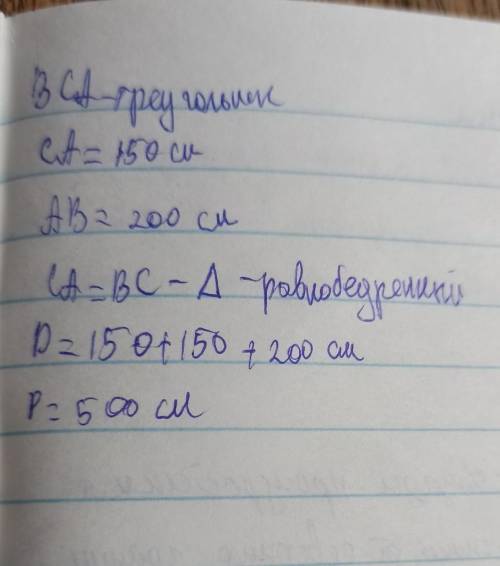 BCA-треугольник
CA=150 см
AB=200 см
CA=BC-Δ-равнобедренный
P=150+150+200 см
P=500 см